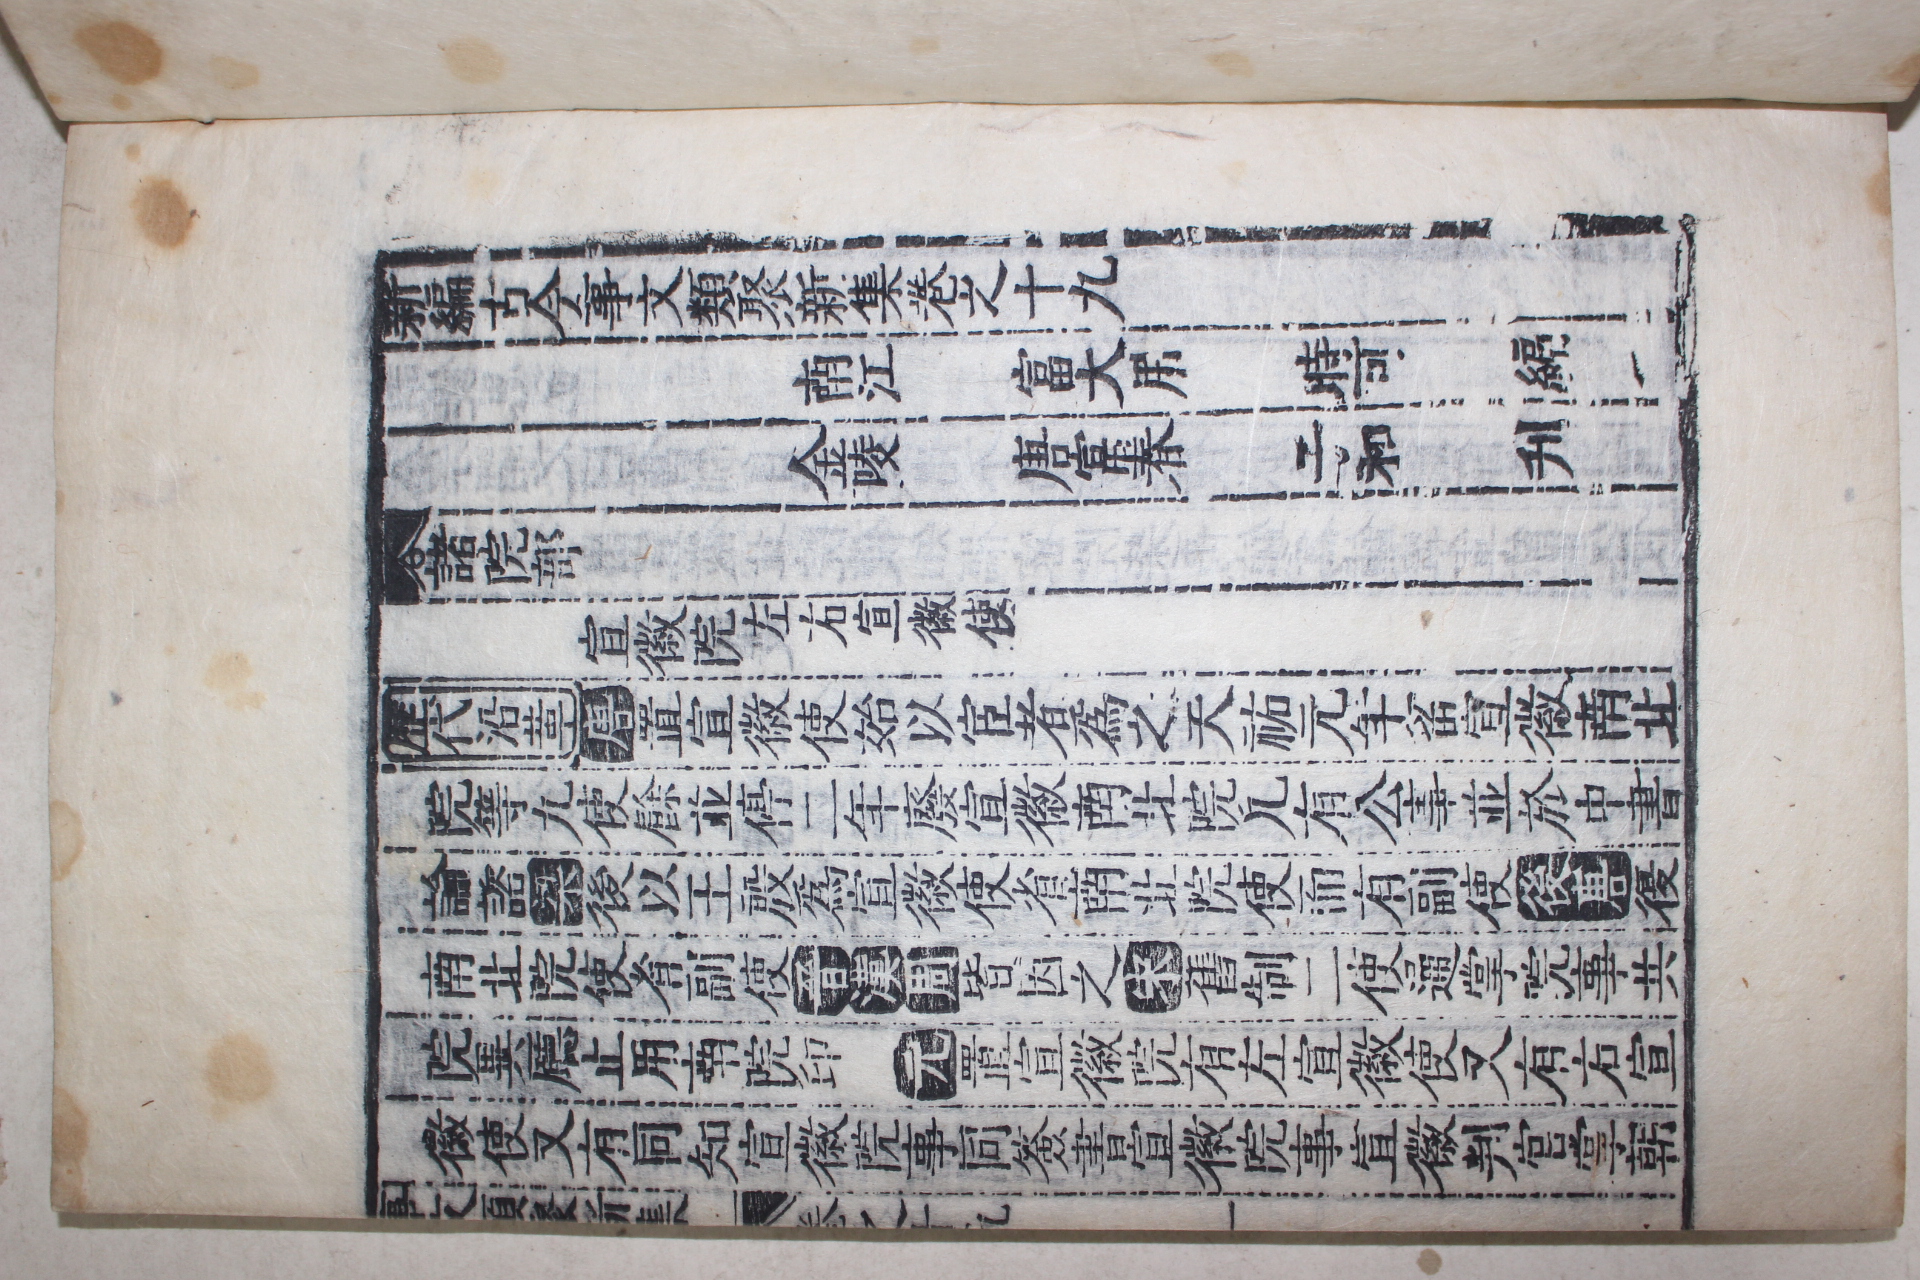 新編古今事文類聚新集卷之十九
南江 富大用 時可 編
金陵 唐富春 子和 刋
諸院部
宣徽院左右宣徽使
歷代沿革唐置宣徽使始以宦者爲之天祐元年畱宣徽南北
院等九使餘並停二年廢宣徽南北院凡有公事並於中書
論諮梁後以王殷爲宣徽使省南北院使而有副使後唐復
南北院使省副使晋漢周皆因之宋舊制二使通掌院事共
院異廳止用南院印 元置宣徽院有左宣徽使又有右宣
徽使又有同知宣徽院事同簽書宣徽院事宣徽判官掌朝
事文類聚新集 卷之十九 一